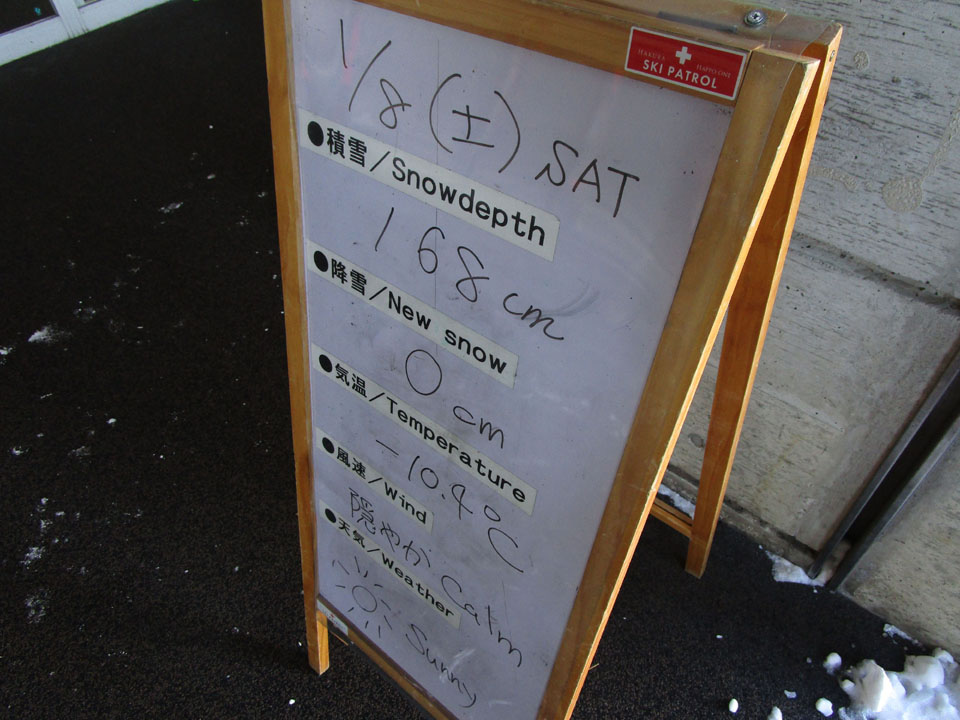 HAKUBA HAPPO ONE
SKI PATROL
1/8 (土) SAT
●積雪/Snowdepth
168cm
●降雪/New snow
0cm
●気温/Temperature
-10.4℃
●風速/Wind
隠やか Calm
●天気/Weather
Sunny